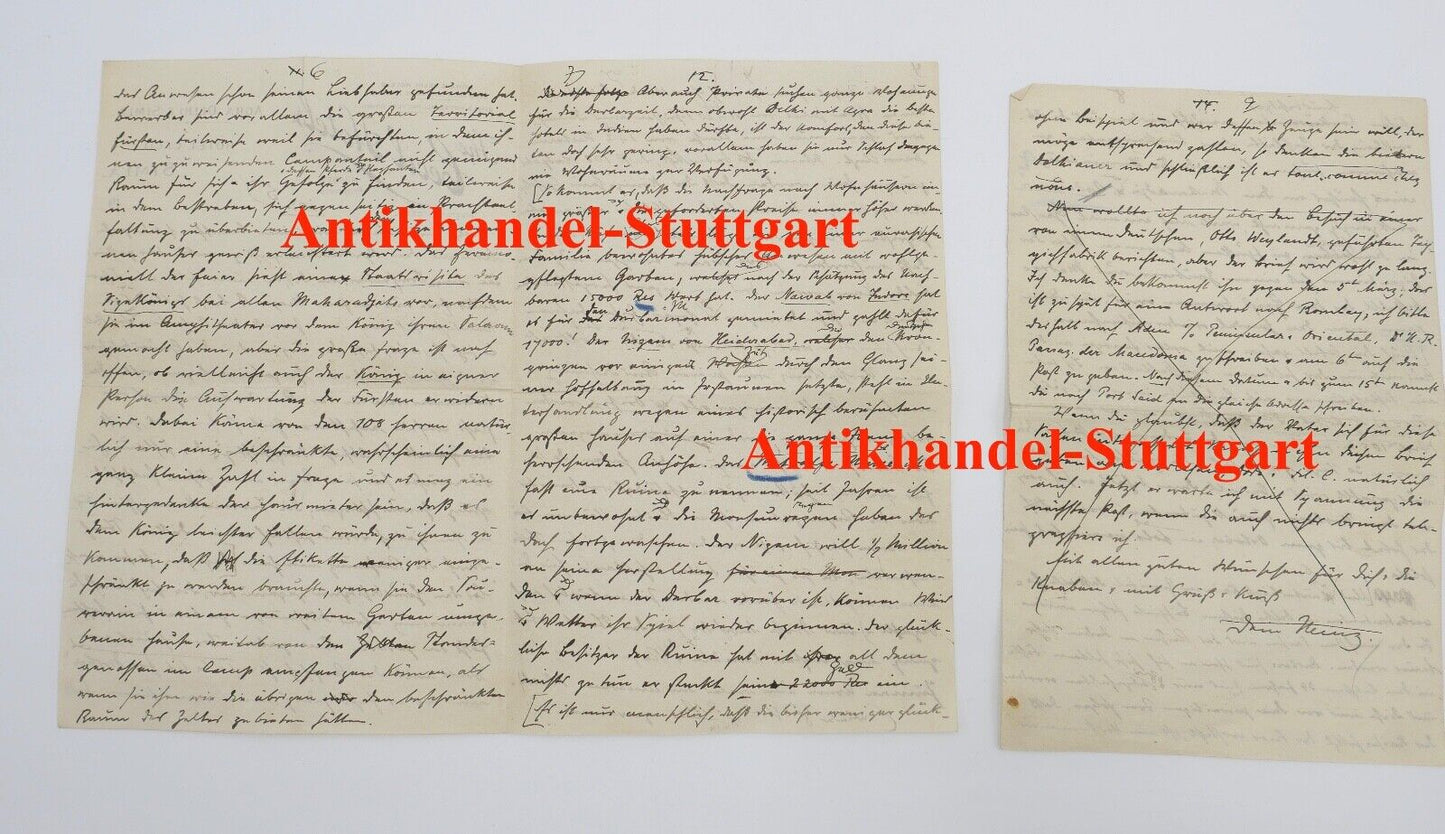 6
das Anwesen schon seinen Liebhaber gefunden hat.
Bewerber sind vor allem die großen Territorial
fürsten, teilweise weil sie befürchten, in dem ih-
nen zuzuweisenden Campanteil nicht genügend
dessen Pferde
Raum für sich + ihr Gefolge zu finden, teilweise
in dem Bestreben, sich gegenseitig an Prachtent
faltung zu überbieten,
nen Häuser erleichtert wird. Das Ceremo-
niell der Feier sieht einen Staatsvisite des
Vizekönigs bei allen Maharadjahs vor, nachdem
sie im Amphitheater vor dem König ihren Salaam
gemacht haben, aber die große Frage ist noch
offen, ob vielleicht auch der König in eigner
Person die Aufwartung der Fürsten erwidern
wird. Dabei käme von den 108 Herren natür-
lich nur eine beschränkte, wahrscheinlich eine
ganz kleine Zahl in Frage und es mag ein
Hintergedanke der Hausmieter sein, daß es
dem König leichter fallen würde, zu ihnen zu
kommen, daß die Etikette weniger einge-
schränkt zu werden brauchte, wenn sie den Sou-
verain in einem von weitem Garten umge-
benen Hause, weitab von den Standes-
genossen im Camp empfangen können, als
wenn sie ihm wie die übrigen den beschränkten
Raum des Zeltes zu bieten hätten.
7 12.
Aber auch Private suchen ganze Wohnungen
für die Durbarzeit, denn obwohl Delhi mit Agra die besten
Hotels in Indien haben dürfte, ist der Komfort, den diese bie-
ten doch sehr gering, vor allem haben sie nur Schlaf dagegen
nie Wohnräume zur Verfügung.
[So kommt es, daß die Nachfrage nach Wohnhäusern im-
mer größer + die geforderten Preise immer höher werden.
von einer eurasischen
Familie bewohntes hübsches Anwesen mit wohlge-
pflegtem Garten, das nach der Schätzung der Nach-
baren 15000 Rs Wert hat. Der Nawab von Indore hat
es für den Durbarmonat gemietet und zahlt dafür
17000! Der Nizam von Heiderabad, der den deutschen Kron-
prinzen vor einiger Zeit durch den Glanz sei-
ner Hofhaltung in Erstaunen setzte, steht in Un-
terhandlung wegen eines historisch berühmten
großen Hauses auf einer die ganze be-
herrschenden Anhöhe. Das
fast eine Ruine zu nennen; seit Jahren ist
es unbewohnt + die Monsunregen haben das
Dach fortgewaschen. Der Nizam will ½ Million
an seine Herstellung für einen Mon verwen-
den + wenn der Durbar vorüber ist, können Wind
+ Wetter ihr Spiel wieder beginnen. Der glück-
liche Besitzer der Ruine hat mit all dem
Geld
nichts zu tun er steckt seine 22000 Rs ein.
[Es ist nur menschlich, daß die bisher weniger glück-
14. 9
ohne Beispiel und wer dessen Zeuge sein will, der
möge entsprechend zahlen, so denken die
Delhianer und schließlich ist es tout comme chez
nous.
Nun wollte ich noch über den Besuch in einer
von einem Deutschen, Otto Weylandt, geführten Tep-
pichfabrik berichten, aber der Brief wird wohl zu lang.
Ich denke du bekommst ihn gegen den 5ten März. Das
ist zu spät für eine Antwort nach Bombay, ich bitte
deshalb nach Aden c/o Peninsular & Oriental, Dr H. R.
Passag. der Macedonia zu schreiben + am 6ten auf die
Post zu geben. Nach diesem Datum + bis zum 15ten kannst
du nach Port Said an die gleiche Adresse schreiben.
Wenn du glaubst, daß der Vater sich für diese
Sachen diesen Brief
natürlich
auch. Jetzt erwarte ich mit Spannung die
nächste Post, wenn die auch nichts bringt tele-
graphiere ich.
Mit allen guten Wünschen für Dich + die
Knaben + mit Gruß + Kuß
Dein Heinz.
Antikhandel-Stuttgart
Antikhandel-Stuttgart